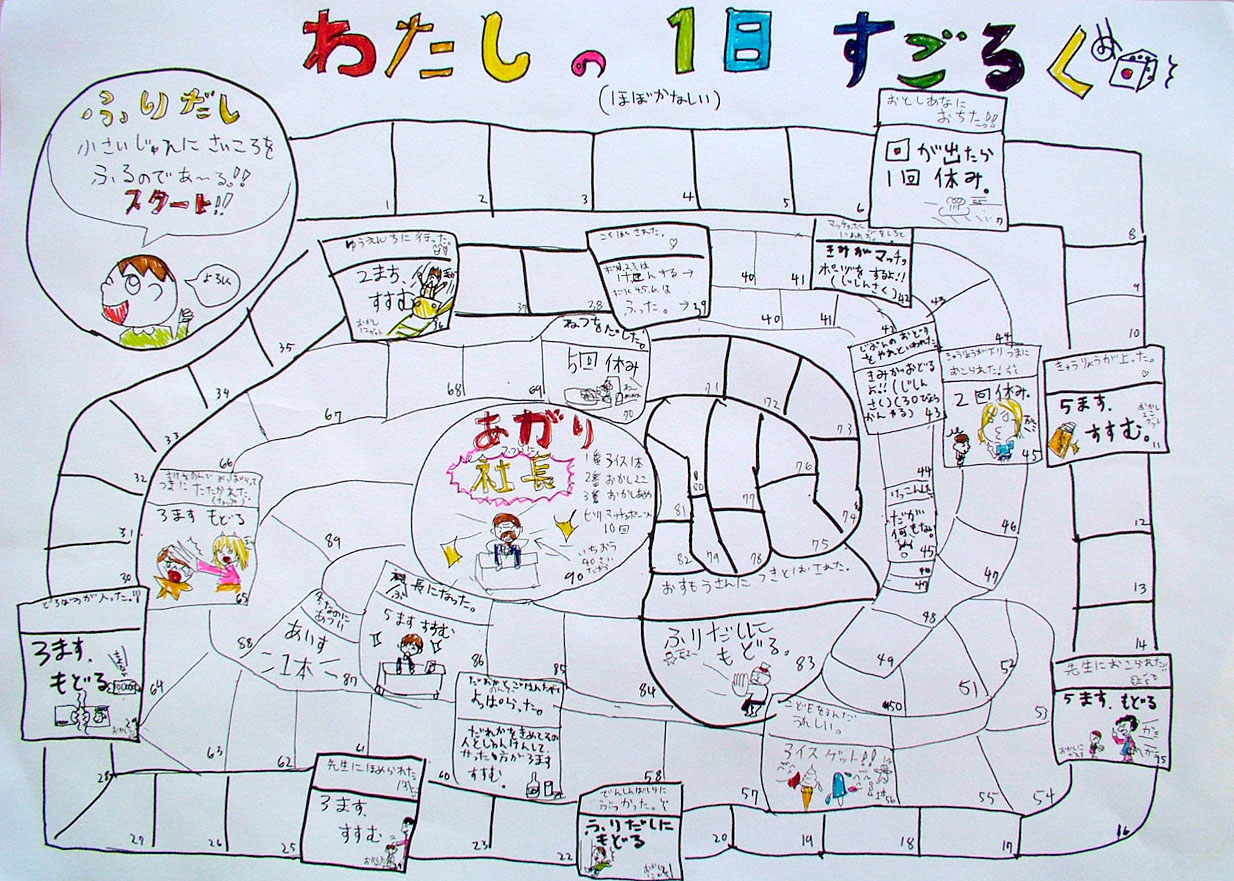 わたしの1日すごろく
(ほぼかなしい)
ふりだし
小さいじゅんにさいころを
ふるのであ〜る!!
スタート!!
よろしく
1
2
3
4
5
6
おとしあなに
おちた!!
回が出たら
1回休み。
7
8
9
10
きゅうりょうが上った。
5ます、
すすむ。
11
12
13
14
先生におこられた!!
5ます、もどる
15
16
17
18
19
20
でんしんばしらに
ぶつかった。
ふりだしに
もどる
21
22
23
先生にほめられた
3ます、
すすむ
25
26
27
28
どろぼうが入った。!!
3ます、
もどる
30
31
32
33
34
35
ゆうえんちに行った。
2ます、
すすむ
36
37
38
こくはくされた。
ふった。→39
40
41
きみがマッチョ
ポーズをするよ!!
(じしんさく)
42
43
44
きゅうりょうが下りつまに
おこられた!
2回休み。
45
46
47
40
41
42
きみがおどる
よ!!(じしん
さく)
43
44
けっこんした
だが
何もなし
45
46
47
48
49
50
51
52
53
54
55
こどもをうんだ
うれしい。
アイスゲット!!
56
57
58
よっぱらった。
だれかをきめてその
人とじゃんけんして、
かった方が3ます
すすむ。
60
61
62
63
64
3ます もどる
65
66
67
68
69
ねつをだした。
5回休み
70
71
72
73
74
75
76
77
78
79
80
81
82
おすもうさんにつきとばされた。
ふりだしに
もどる。
83
84
85
86
社長になった。
5ますすすむ
あいす
1本
87
88
89
あがり
社長
1番アイス1本
2番おかし2こ
3番おかしあめ
ビリマッチョポーズ
10回
90